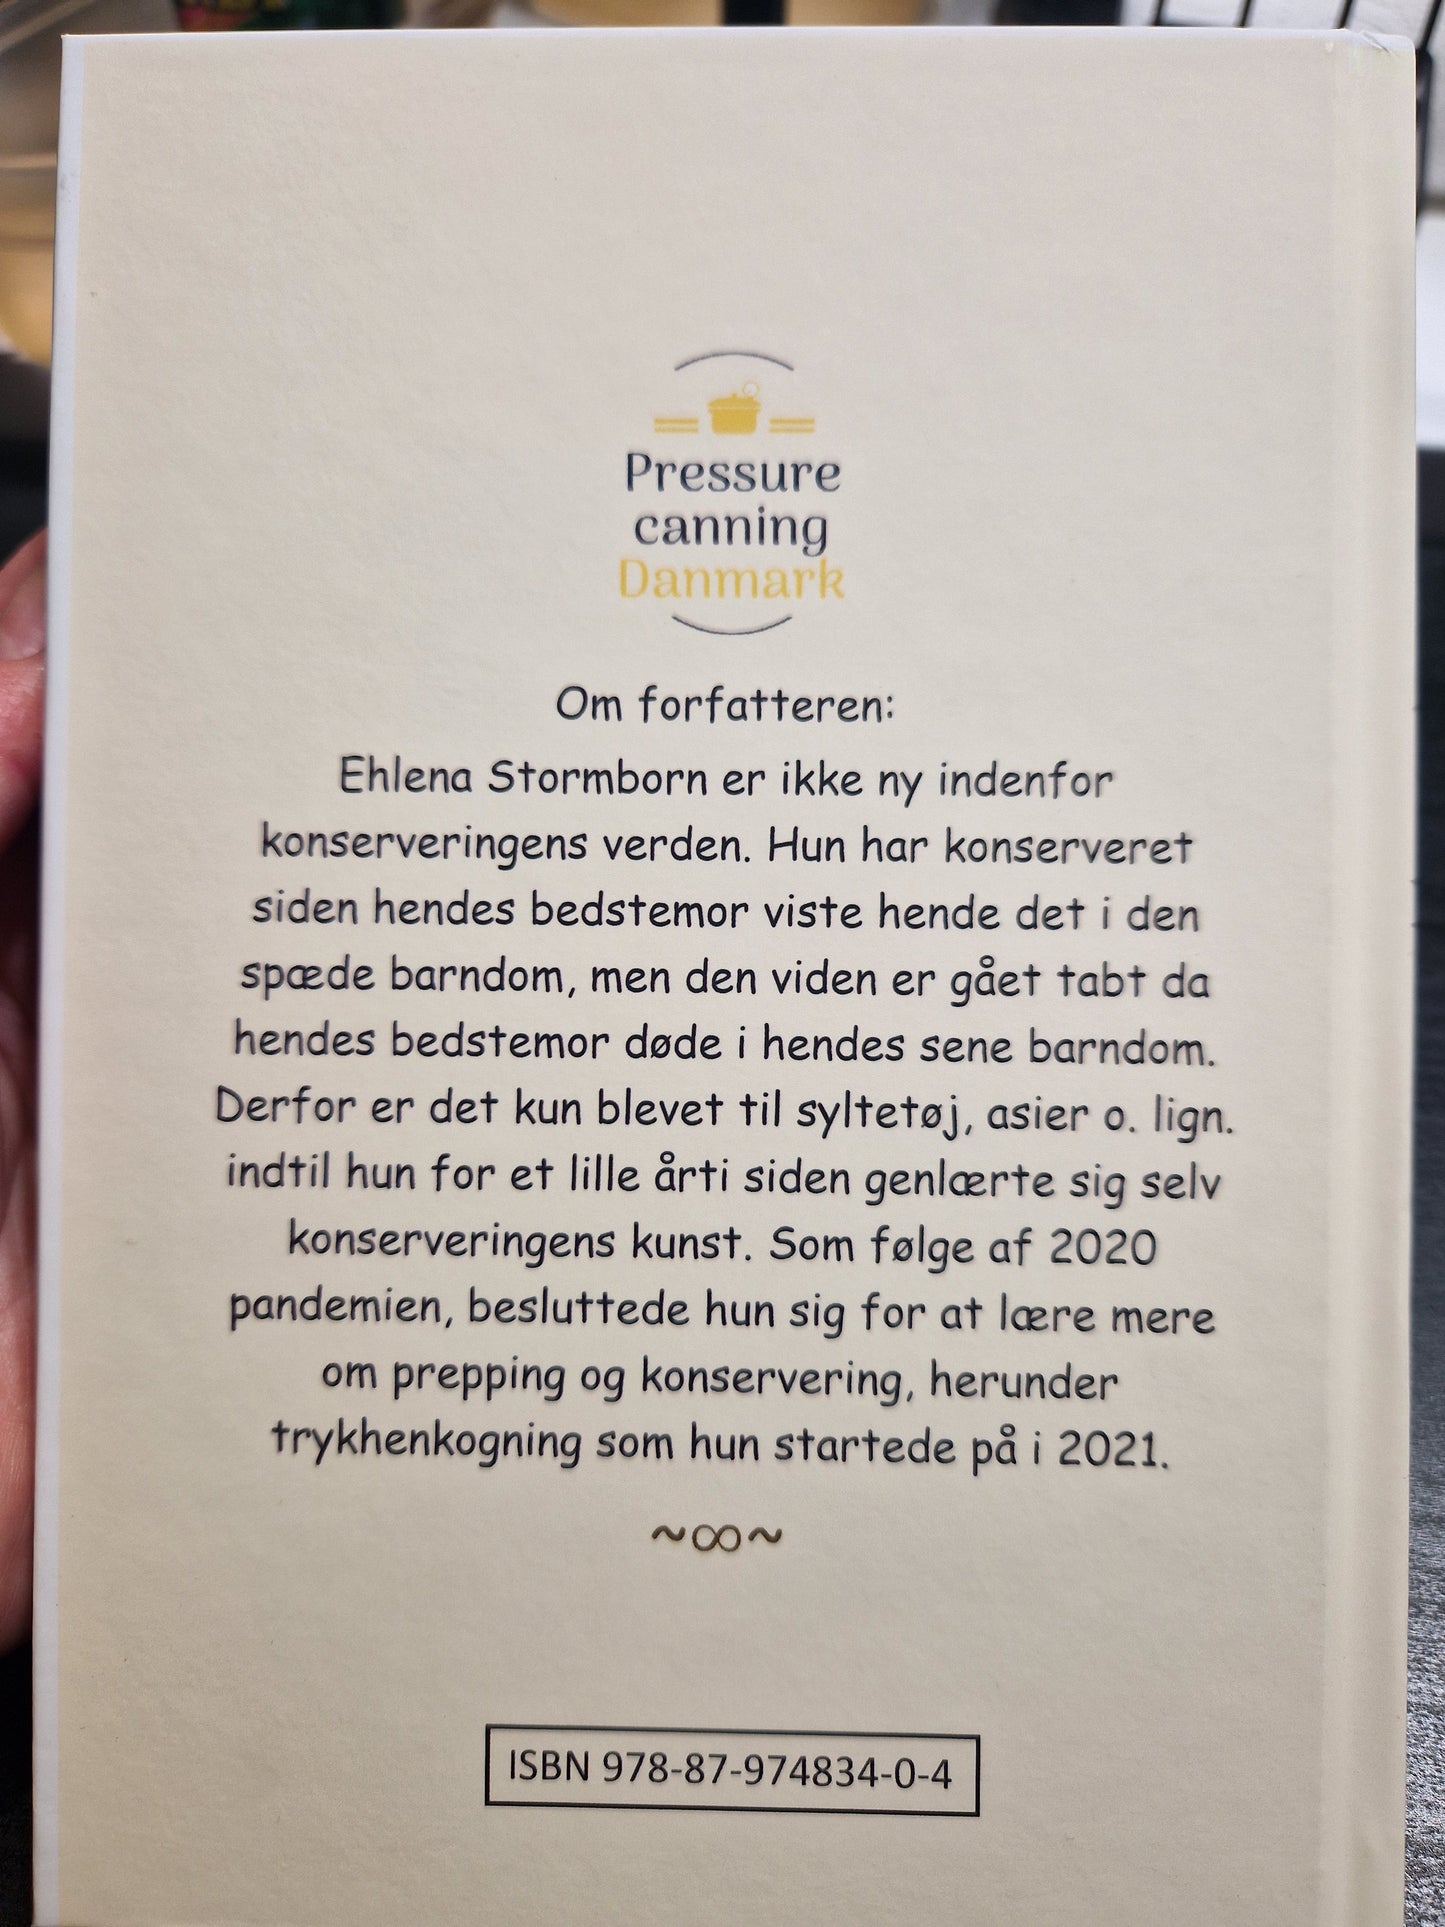 Pressure
canning
Danmark
Om forfatteren:
Ehlena Stormborn er ikke ny indenfor
konserveringens verden. Hun har konserveret
siden hendes bedstemor viste hende det i den
spæde barndom, men den viden er gået tabt da
hendes bedstemor døde i hendes sene barndom.
Derfor er det kun blevet til syltetøj, asier o. lign.
indtil hun for et lille årti siden genlærte sig selv
konserveringens kunst. Som følge af 2020
pandemien, besluttede hun sig for at lære mere
om prepping og konservering, herunder
trykhenkogning som hun startede på i 2021.
~∞~
ISBN 978-87-974834-0-4